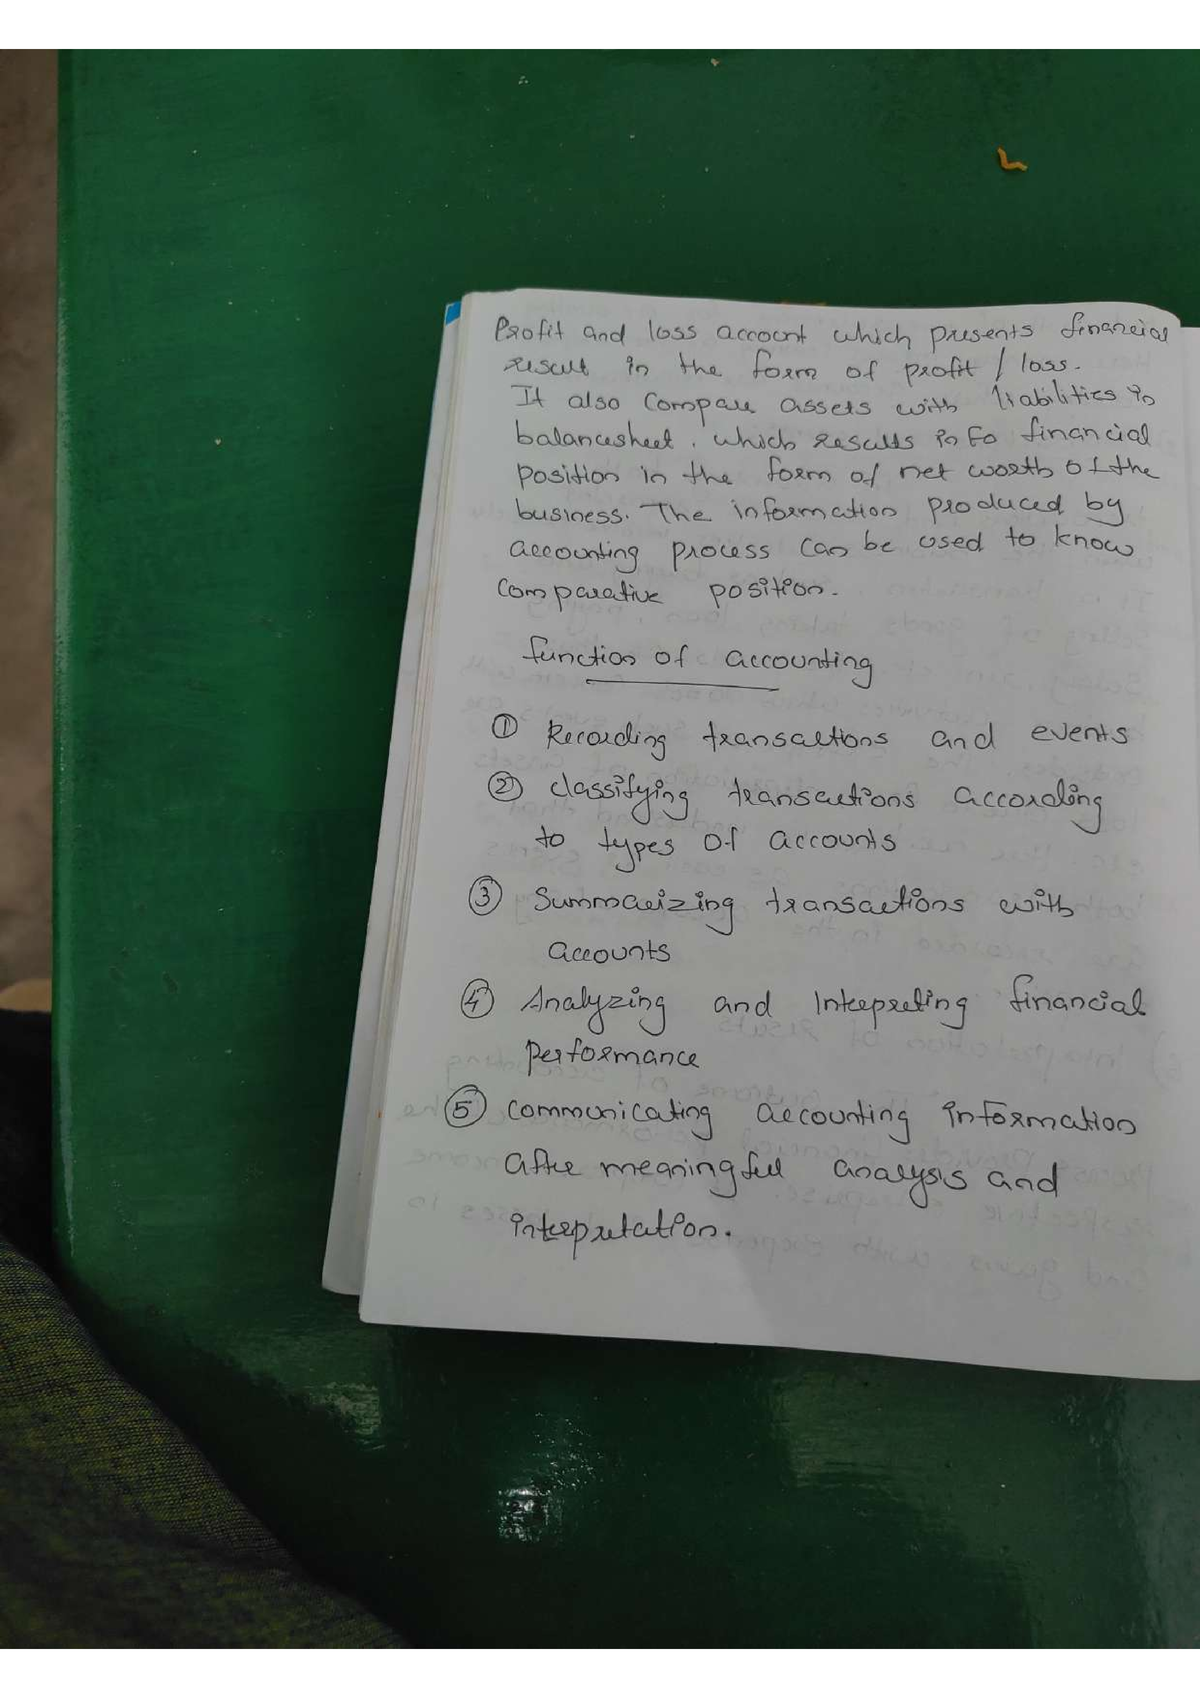 Profit and loss account which presents financial
result in the form of profit / loss.
It also compare assets with liabilities in
balancesheet. which results in to financial
position in the form of net worth of the
business. The information produced by
accounting process can be used to know
comparative position.
function of accounting
① Recording transactions and events
② classifying transactions according
to types of accounts
③ Summarizing transactions with
accounts
④ Analyzing and Interpreting financial
performance
⑤ communicating accounting information
after meaningful analysis and
interpretation.